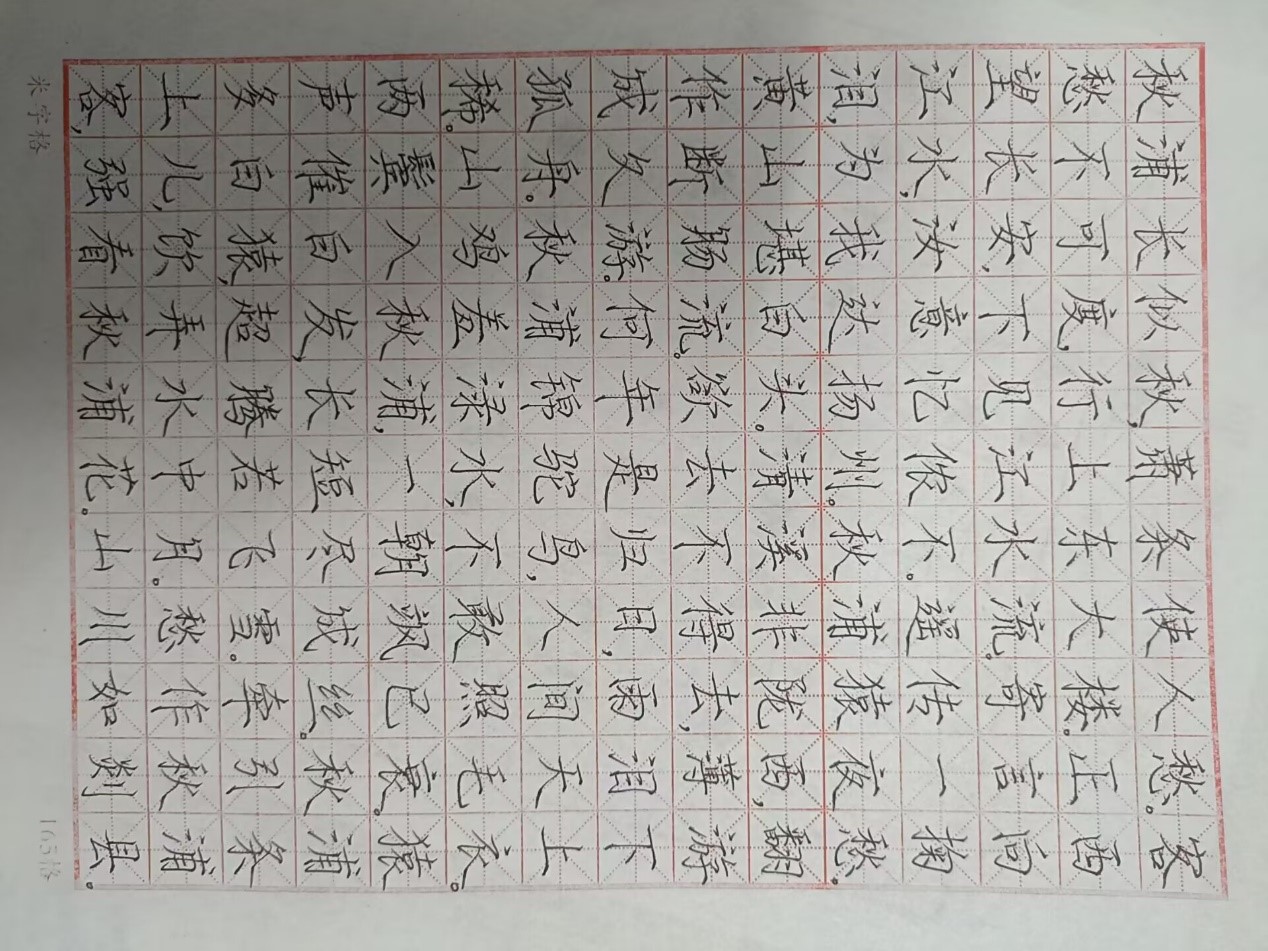 秋浦长似秋,萧条使人愁。客
愁不可度,行上东大楼。正西
望长安,下见江水流。寄言向
江水,汝意忆侬不。遥传一掬
泪,为我达扬州。秋浦猿夜愁。
黄山堪白头。清溪非陇西,翻
作断肠流。欲去不得去,薄游
成久游。何年是归日,雨泪下
孤舟。秋浦锦驼鸟,人间天上
稀。山鸡羞渌水,不敢照毛衣。
两鬓入秋浦,一朝飒已衰。猿
声催白发,长短尽成丝。秋浦
多白猿,超腾若飞雪。牵引条
上儿,饮弄水中月。愁作秋浦
客,强看秋浦花。山川如剡县。
米字格
165格